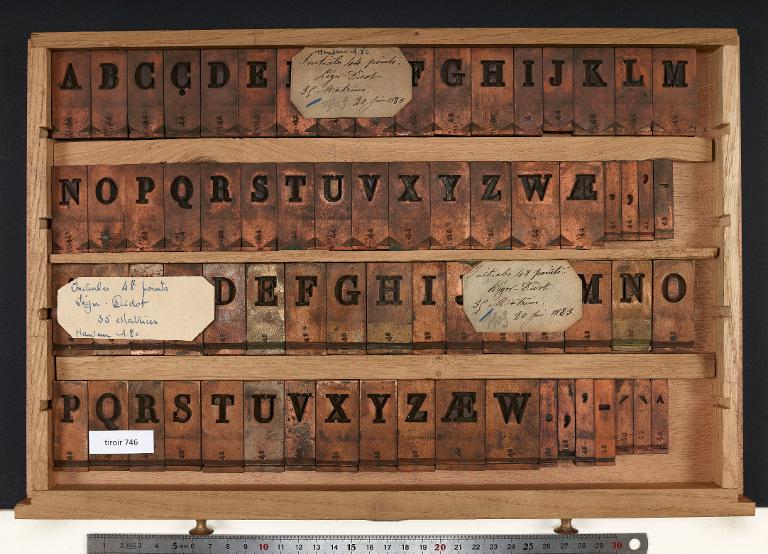 A B C Ç D E F G H I J K L M
Initiales 44 points.
Léger-Didot
35 Matrices.
1103 20 juin 1883
N O P Q R S T U V X Y Z W Æ . , ' -
Initiales 48 points
Léger-Didot
35 Matrices
Hauteur
D E F G H I J M N O
Initiales 48 points.
Léger-Didot.
35 Matrices.
1103 20 juin 1883
P Q R S T U V X Y Z Æ W . , ' -
tiroir 746
1 2 3 4 5 6 7 8 9 10 11 12 13 14 15 16 17 18 19 20 21 22 23 24 25 26 27 28 29 30